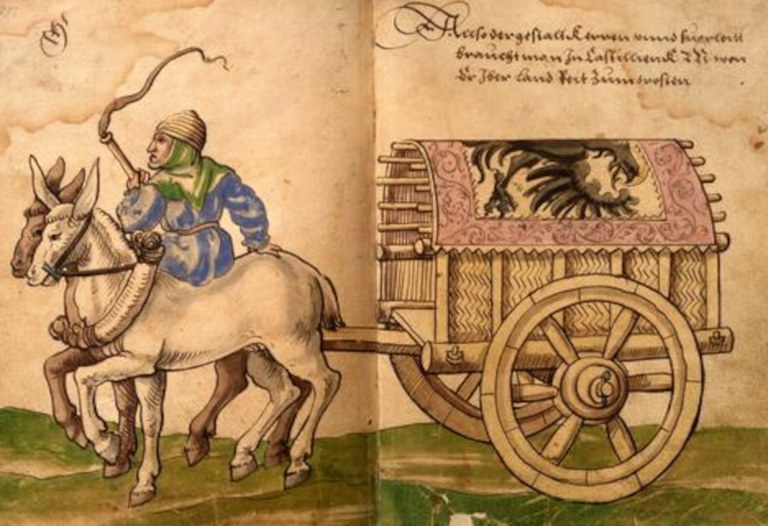 Allso der gestallt Kerren vnnd fuerleitt
braucht man In Castillien K M wen
Er Iber land Reit Zum trosten